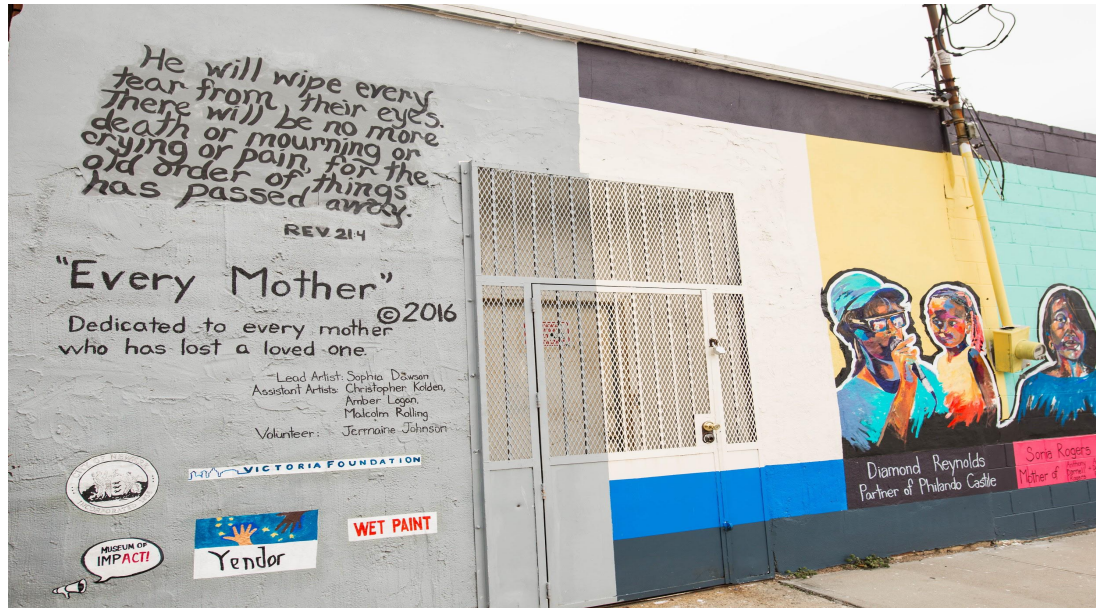 He will wipe every
tear from their eyes.
There will be no more
death or mourning or
crying or pain, for the
old order of things
has passed away.
REV 21:4
"Every Mother"
©2016
Dedicated to every mother
who has lost a loved one.
Lead Artist: Sophia Dawson
Assistant Artists: Christopher Kolden,
Amber Logan,
Malcolm Rolling
Volunteer: Jermaine Johnson
VICTORIA FOUNDATION
MUSEUM OF
IMPACT!
Yendor
WET PAINT
Diamond Reynolds
Partner of Philando Castile
Sonia Rogers
Mother of